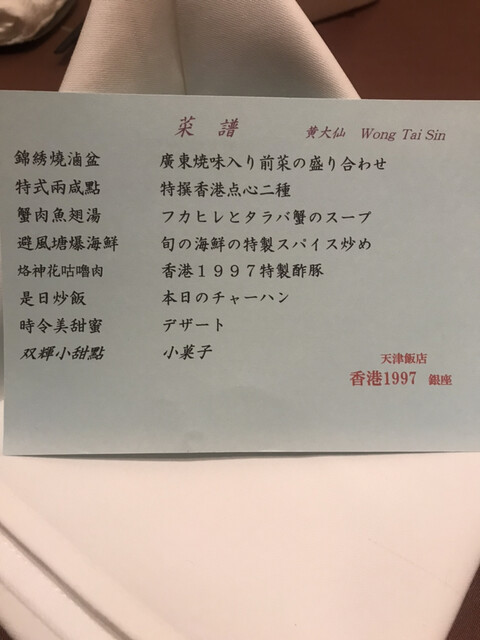 菜譜 黄大仙 Wong Tai Sin
錦绣燒滷盆 廣東焼味入り前菜の盛り合わせ
特式兩咸點 特撰香港点心二種
蟹肉魚翅湯 フカヒレとタラバ蟹のスープ
避風塘爆海鮮 旬の海鮮の特製スパイス炒め
烙神花咕嚕肉 香港１９９７特製酢豚
是日炒飯 本日のチャーハン
時令美甜蜜 デザート
双輝小甜點 小菓子
天津飯店
香港1997 銀座